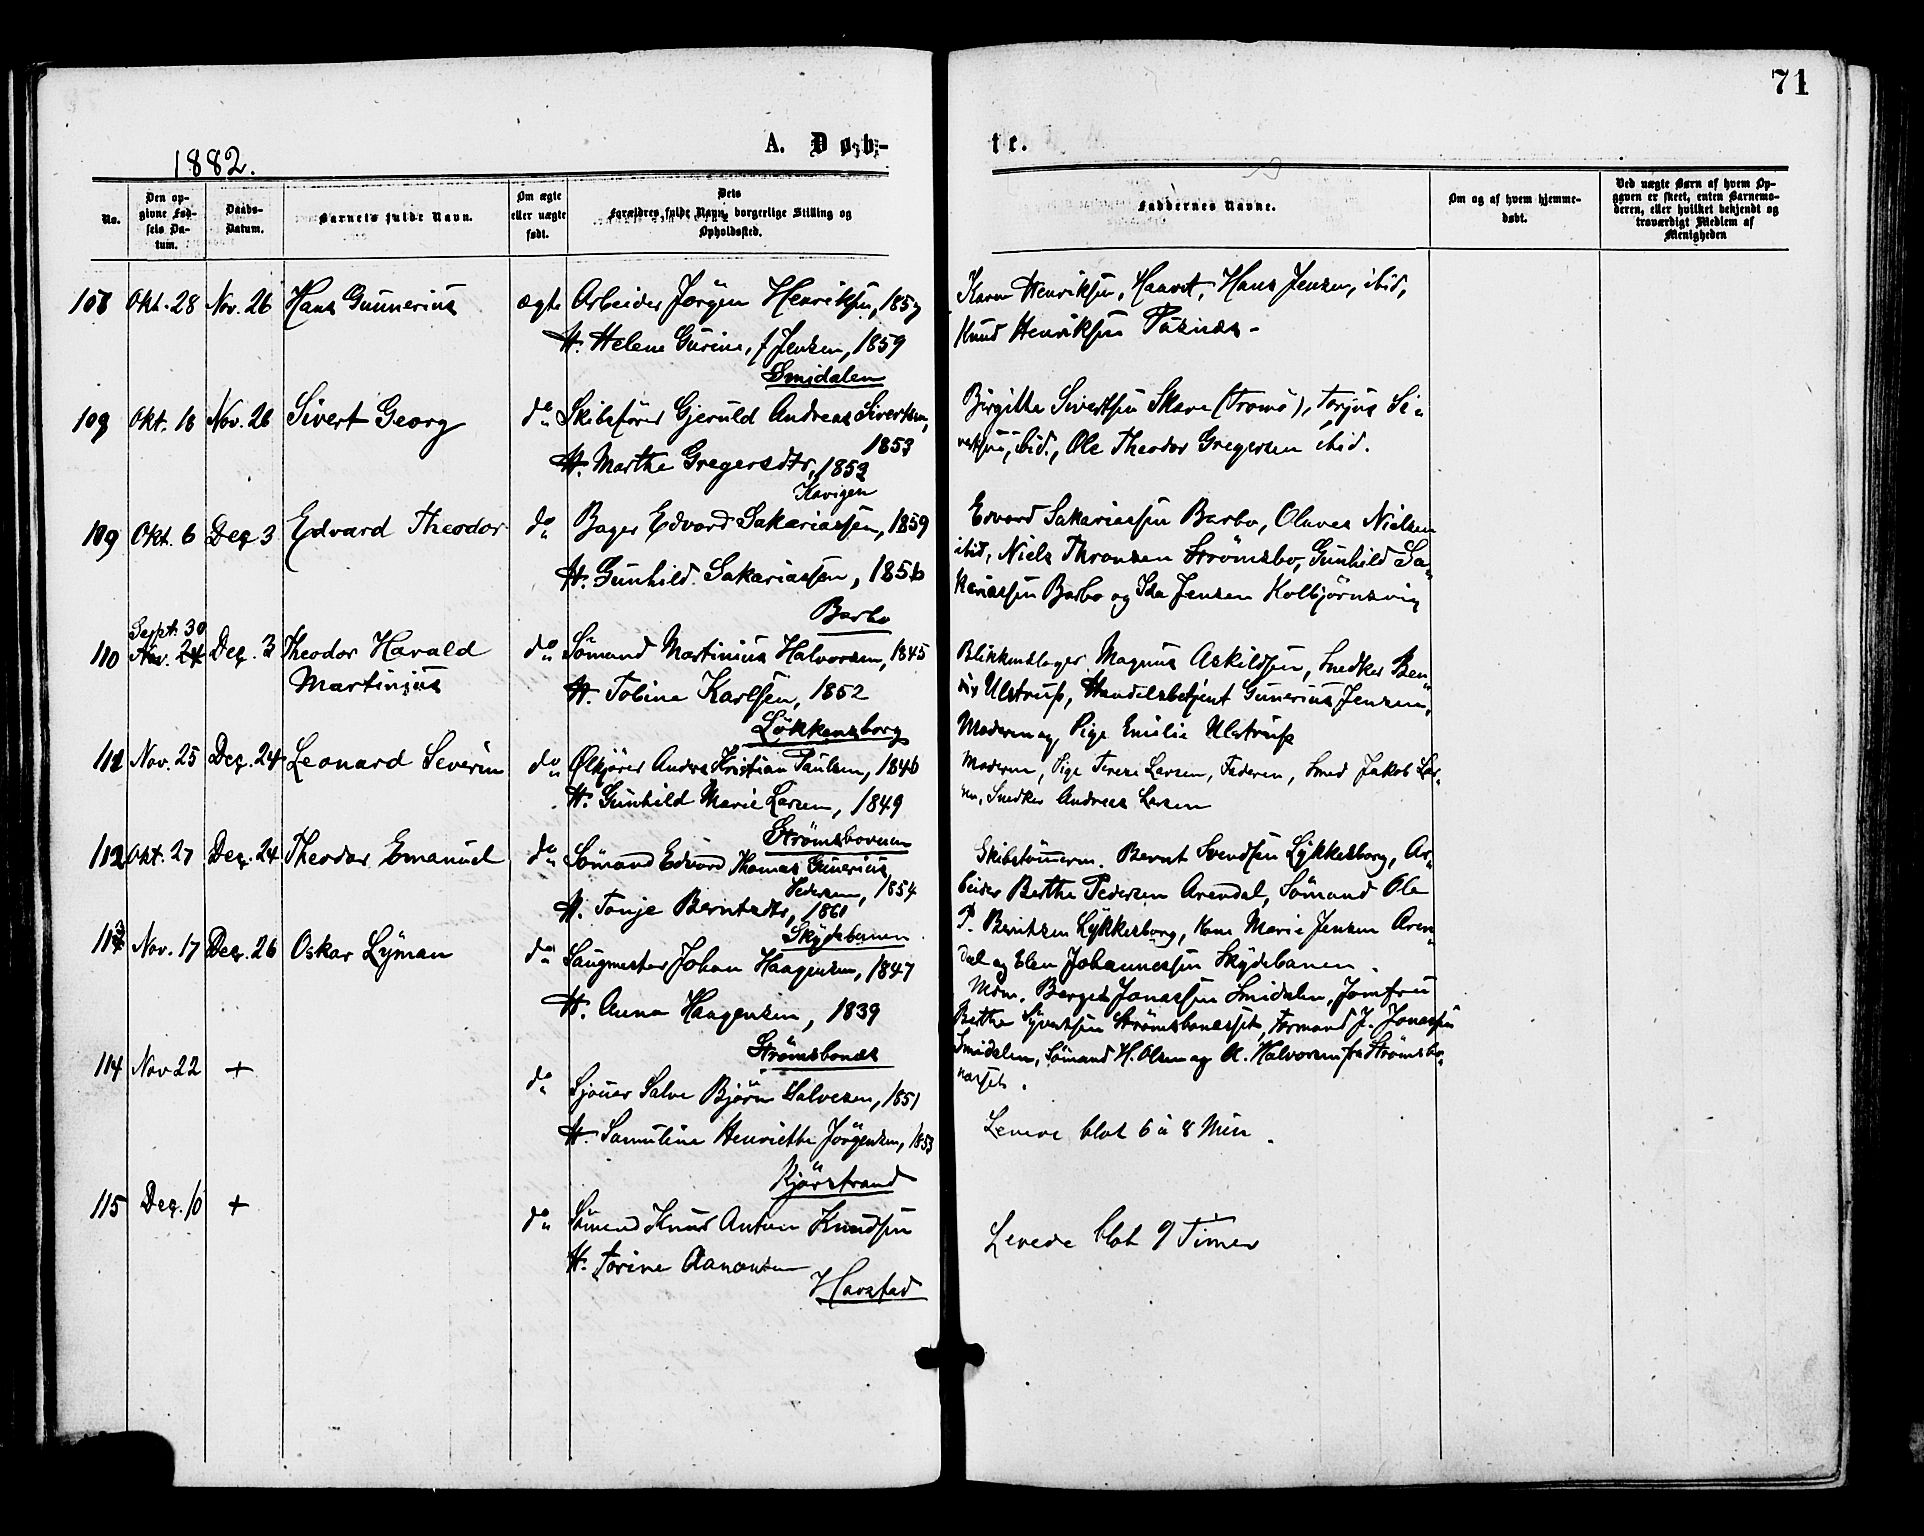 71
1882.
A. Døb-
te.
No.
Den op-
givne Fød-
sels Da-
tum.
Daabs-
Datum.
Barnets fulde Navn.
Om ægte
eller uægte
født.
Dets
Forældres fulde Navn, borgerlige Stilling og
Opholdssted.
Faddernes Navne.
Om og af hvem hjemme-
døbt.
Ved uægte Børn af hvem Op-
gaven er skeet, enten Barnemo-
deren, eller hvilket bekjendt og
troværdigt Medlem af
Menigheden
108 Okt. 28 Nov. 26 Hans Gunnerius ægte Arbeider Jörgen Henriksen, 1857
H. Helene Gurine, f Jensen, 1859
Smidalen
Karen Henriksen, Haavet, Hans Jensen, ibid,
Knud Henriksen
109 Okt. 16 Nov. 26 Sivert Georg do Skibsfører Gjeruld Andreas Sivertsen,
1853
H. Marthe Gregersdtr, 1852
Kavigen
Birgitte Sivertsen Skare (Tromö), Torjus Si-
vertsen, ibid., Ole Theodor Gregersen ibid.
109 Okt. 6 Dez 3 Edvard Theodor do Bager Edvard Sakariassen, 1859
H. Gunhild Sakariassen, 1856
Barbo
Edvard Sakariassen Barbo, Olaves Nielsen
ibid, Niels Thronsen Strømsbo, Gunhild Sa-
kariassen Barbo og Ida Jensen Kolbjörnsvig
Sept. 30
110 Nov. 24 Dez. 3 Theodor Harald do Sömand Martinius Halvorsen, 1845
Martinius
H. Tobine Karlsen, 1852
Lökkensborg
Blikkenslager Magnus Askildsen, Snedker Ben-
dix Ulstrup, Handelsbetjent Gunerius Jensen,
Moderen og Pige Emilie Ulstrup
111 Nov. 25 Dez. 24 Leonard Severin do Ølkjører Anders Kristian Paulsen, 1846
H. Gunhild Marie Larsen, 1849
Strømsboveien
Moderen, Pige Terese Larsen, Faderen, Smed Jakob Lar-
sen, Snedker Andreas Larsen
112 Okt. 27 Dez. 24 Theodor Emanuel do Sömand Edvard Thomas Gunerius
Pedersen, 1854
H. Tonje Berntsdtr, 1861
Skydebanen
Skibstömerm. Bernt Svendsen Lykkesborg, Ar-
beider Berthe Pedersen Arendal, Sömand Ole
P. Berntsen Lykkesborg, Kone Marie Jensen Aren-
dal og Elen Johannessen Skydebanen.
113 Nov. 17 Dez. 26 Oskar Lyman do Saugmester Johan Haagensen, 1847
H. Anna Haagensen, 1839
Strömsbonæs
Mdm. Jonassen Smidalen, Jomfru
Berthe Strömsbonæsset, Formand J. Jonassen
Smidalen, Sömand H. Olsen og K. Halvorsen fra Strömsbo-
næsset.
114 Nov 22 + do Sjouer Salve Björn Salvesen, 1851
H. Samuline Henriette Jörgensen, 1853
Kjörstrand
Levede blot 6 à 8 Min.
115 Dez. 10 + do Sömand Knud Anton Knudsen
H. Torine Aanonsen
Harstad
Levede blot 9 Timer